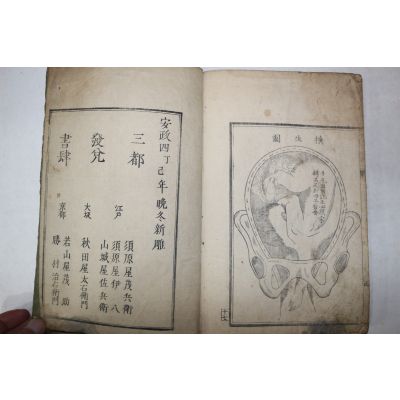 橫生圖
安政四丁巳年晩冬新雕
三都
發兌
書肆
江戸
須原屋茂兵衛
須原屋伊八
山城屋佐兵衛
大坂
秋田屋太右衛門
京都
若山屋茂助
勝村治右衛門